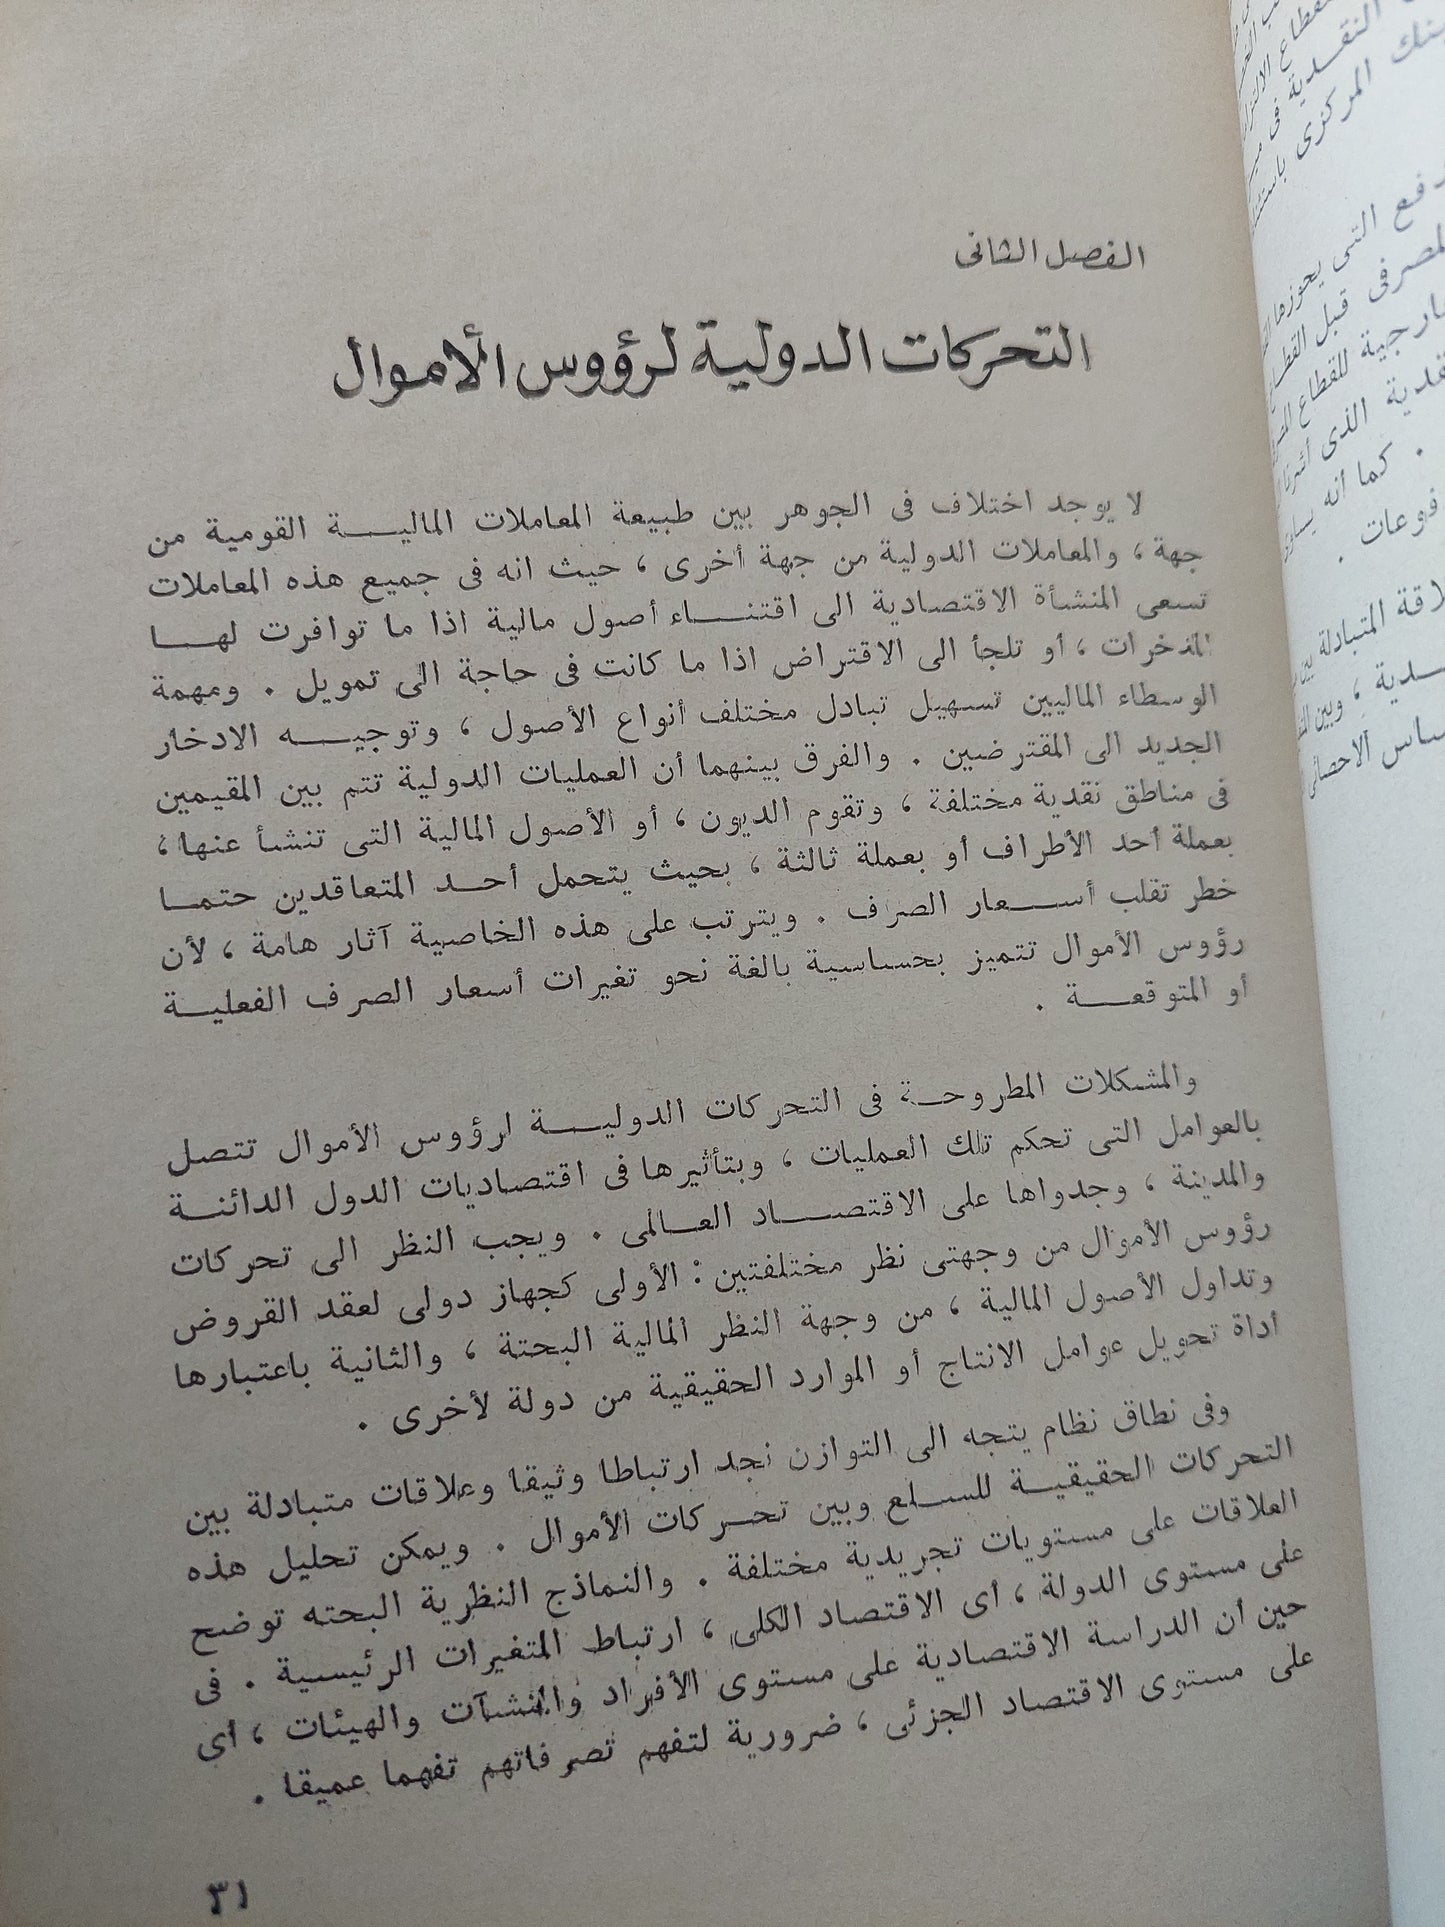 الفصل الثانى
التحركات الدولية لرؤوس الأموال
لا يوجد اختلاف فى الجوهر بين طبيعة المعاملات المالية القومية من
جهة ، والمعاملات الدولية من جهة أخرى ، حيث انه فى جميع هذه المعاملات
تسعى المنشأة الاقتصادية الى اقتناء أصول مالية اذا ما توافرت لها
المدخرات ، أو تلجأ الى الاقتراض اذا ما كانت فى حاجة الى تمويل . ومهمة
الوسطاء الماليين تسهيل تبادل مختلف أنواع الأصول ، وتوجيه الادخار
الجديد الى المقترضين . والفرق بينهما أن العمليات الدولية تتم بين المقيمين
فى مناطق نقدية مختلفة ، وتقوم الديون ، أو الأصول المالية التى تنشأ عنها ،
بعملة أحد الأطراف أو بعملة ثالثة ، بحيث يتحمل أحد المتعاقدين حتما
خطر تقلب أسعار الصرف . ويترتب على هذه الخاصية آثار هامة ، لأن
رؤوس الأموال تتميز بحساسية بالغة نحو تغيرات أسعار الصرف الفعلية
أو المتوقعة .
والمشكلات المطروحة فى التحركات الدولية لرؤوس الأموال تتصل
بالعوامل التى تحكم تلك العمليات ، وبتأثيرها فى اقتصاديات الدول الدائنة
والمدينة ، وجدواها على الاقتصاد العالمى . ويجب النظر الى تحركات
رؤوس الأموال من وجهتى نظر مختلفتين : الأولى كجهاز دولى لعقد القروض
وتداول الأصول المالية ، من وجهة النظر المالية البحتة ، والثانية باعتبارها
أداة تحويل عوامل الانتاج أو الموارد الحقيقية من دولة لأخرى .
وفى نطاق نظام يتجه الى التوازن نجد ارتباطا وثيقا وعلاقات متبادلة بين
التحركات الحقيقية للسلع وبين تحركات الأموال . ويمكن تحليل هذه
العلاقات على مستويات تجريدية مختلفة . والنماذج النظرية البحته توضح
على مستوى الدولة ، أى الاقتصاد الكلى ، ارتباط المتغيرات الرئيسية . فى
حين أن الدراسة الاقتصادية على مستوى الأفراد والمنشآت والهيئات ، أى
على مستوى الاقتصاد الجزئى ، ضرورية لتفهم تصرفاتهم تفهما عميقا .
٣١